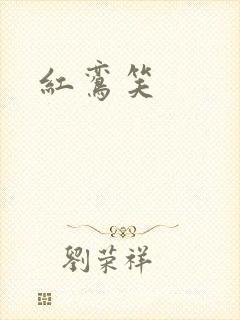 紅鸞笑
劉荣祥